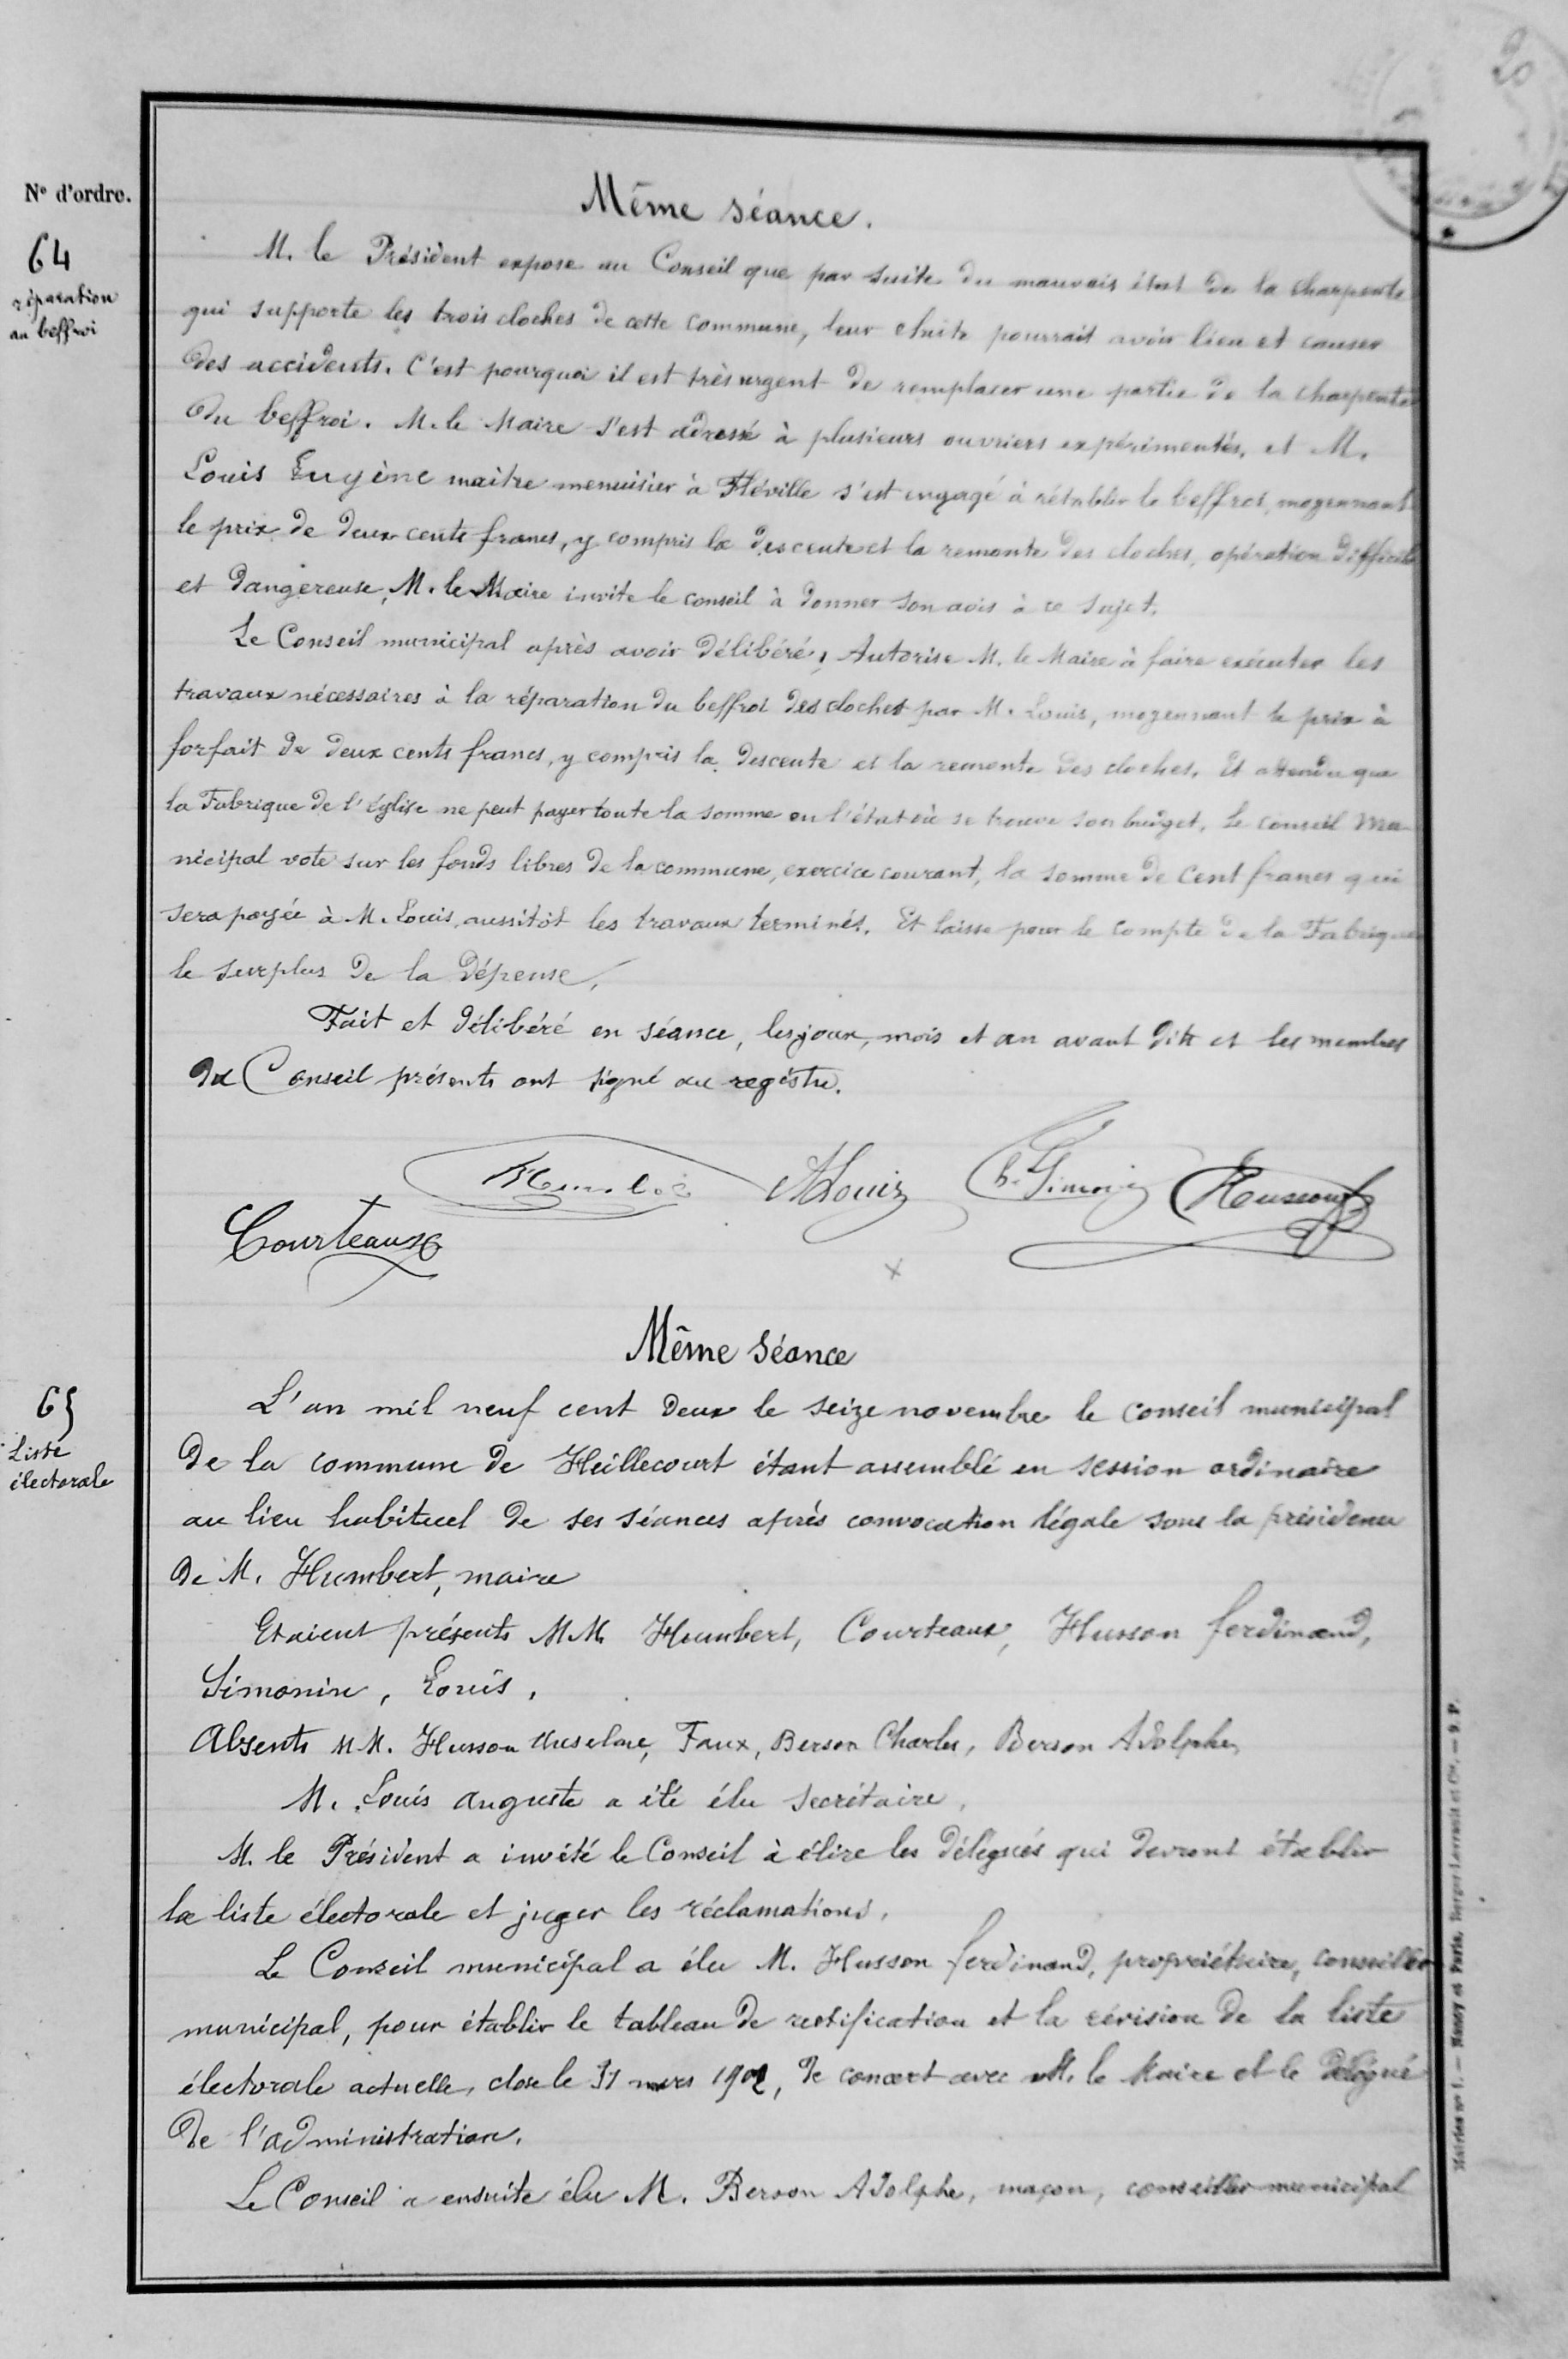 20
N° d'ordre.
Même séance.
64
réparation
au beffroi
M. le Président expose au Conseil que par suite du mauvais état de la charpente
qui supporte les trois cloches de cette commune, leur chute pourrait avoir lieu et causer
des accidents. C'est pourquoi il est très urgent de remplacer une partie de la charpente
du beffroi. M. le Maire s'est adressé à plusieurs ouvriers expérimentés, et M.
Louis Eugène maitre menuisier à Fléville s'est engagé à rétablir le beffroi, moyennant
le prix de deux cents francs, y compris la descente et la remonte des cloches, opération difficile
et dangereuse, M. le Maire invite le conseil à donner son avis à ce sujet.
Le Conseil municipal après avoir délibéré, Autorise M. le Maire à faire exécuter les
travaux nécessaires à la réparation du beffroi des cloches par M. Louis, moyennant le prix à
forfait de deux cents francs, y compris la descente et la remonte des cloches. Et attendu que
la Fabrique de l'église ne peut payer toute la somme en l'état où se trouve son budget, Le conseil mu-
nicipal vote sur les fonds libres de la commune, exercice courant, la somme de cent francs qui
sera payée à M. Louis, aussitôt les travaux terminés. Et laisse pour le compte de la Fabrique
le surplus de la dépense,
Fait et délibéré en séance, les jour, mois et an avant dits et les membres
du Conseil présents ont signé au registre.
ALouis Simonin Husson f
Courteaux
Même séance
65
Liste
électorale
L'an mil neuf cent deux le seize novembre le conseil municipal
de la commune de Heillecourt étant assemblé en session ordinaire
au lieu habituel de ses séances après convocation légale sous la présidence
de M. Humbert, maire
Etaient présents MM. Humbert, Courteaux, Husson ferdinand,
Simonin, Louis,
Absents MM. Husson Anselme, Faux, Berson Charles, Berson Adolphe,
M. Louis auguste a été élu secrétaire,
M. le Président a invité le Conseil à élire les délégués qui devront établir
la liste électorale et juger les réclamations,
Le Conseil municipal a élu M. Husson ferdinand, propriétaire, conseiller
municipal, pour établir le tableau de rectification et la révision de la liste
électorale actuelle, close le 31 mars 1902, de concert avec M. le Maire et le délégué
de l'administration.
Le Conseil a ensuite élu M. Berson Adolphe, maçon, conseiller municipal
Mairies n° 1. — Nancy et Paris, Berger-Levrault et Cie. — 9. P.